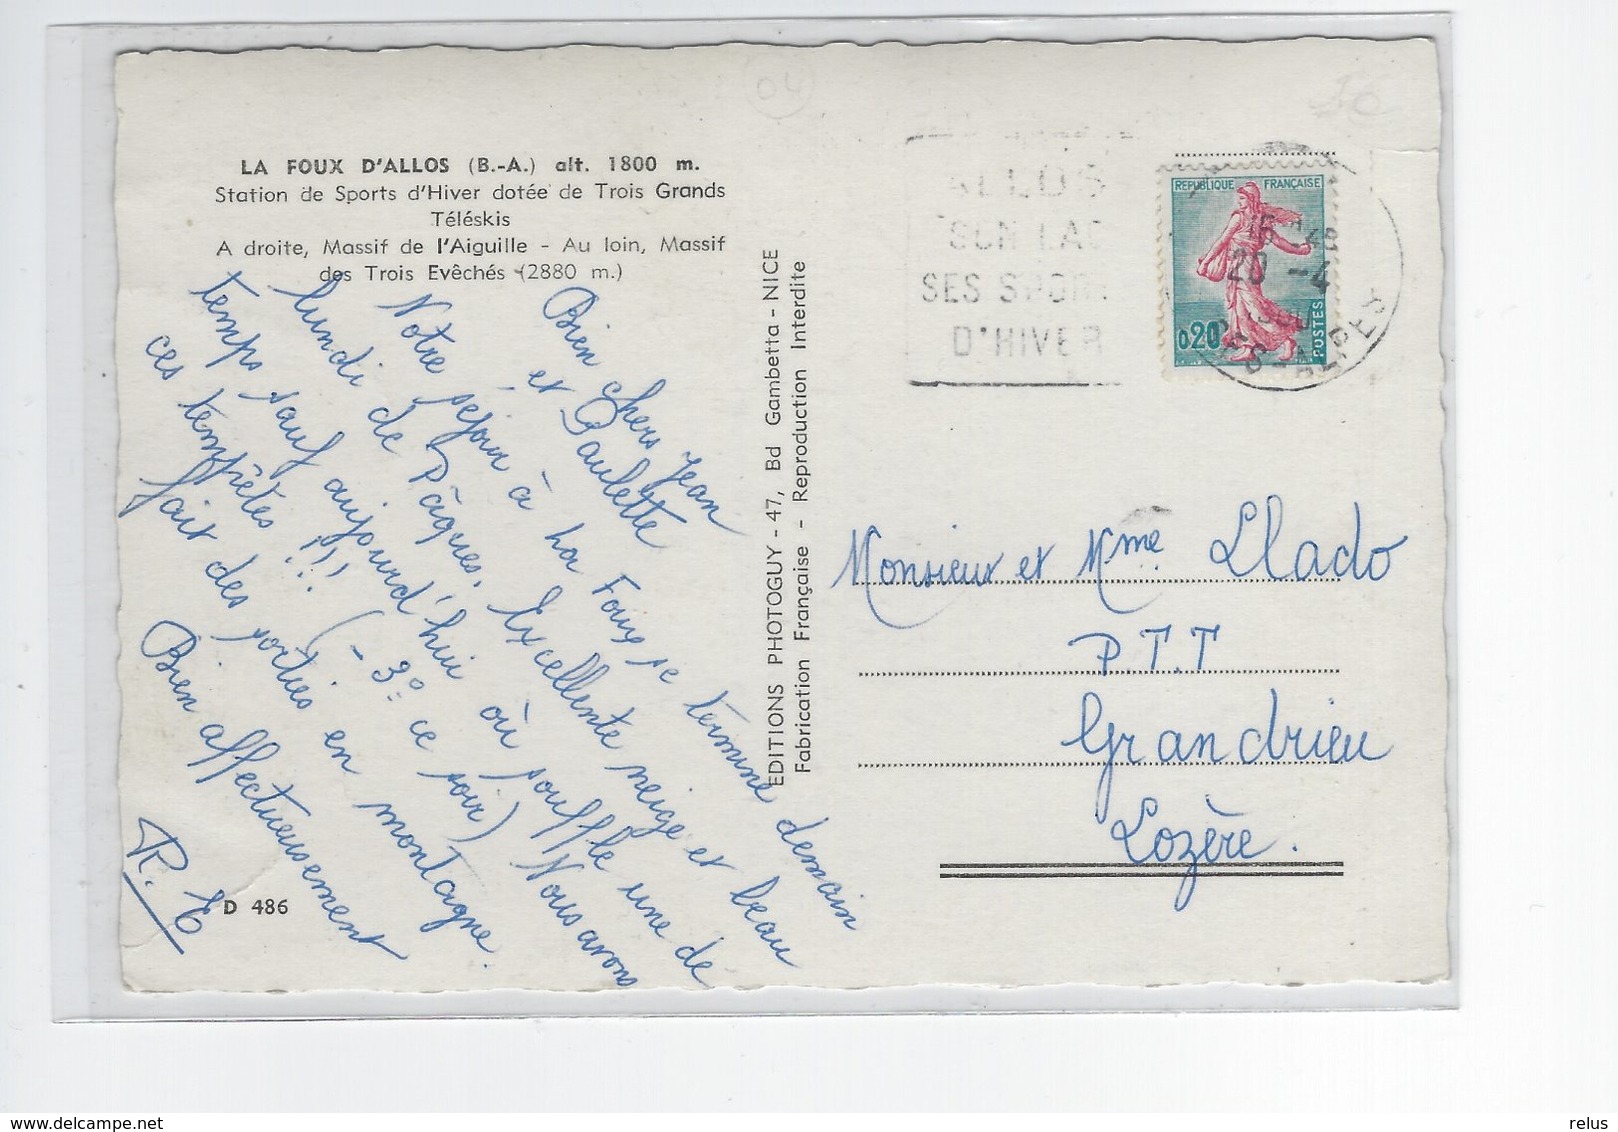 04
LA FOUX D'ALLOS (B.-A.) alt. 1800 m.
Station de Sports d'Hiver dotée de Trois Grands
Téléskis
A droite, Massif de l'Aiguille - Au loin, Massif
des Trois Evêchés (2880 m.)
Bien chers Jean
et Paulette
Notre séjour à la Foux se termine demain
lundi de Pâques. Excellente neige et beau
temps sauf aujourd'hui où souffle une de
ces tempêtes !!! (-3° ce soir) Nous avons
fait des sorties en montagne.
Bien affectueusement
R. E
D 486
EDITIONS PHOTOGUY - 47, Bd Gambetta - NICE
Fabrication Française - Reproduction Interdite
ALLOS
SON LAC
SES SPORTS
D'HIVER
REPUBLIQUE FRANÇAISE
0,20
POSTES
20 -4
Monsieur et Mme Llado
P.T.T
Grandrieu
Lozère.
relus